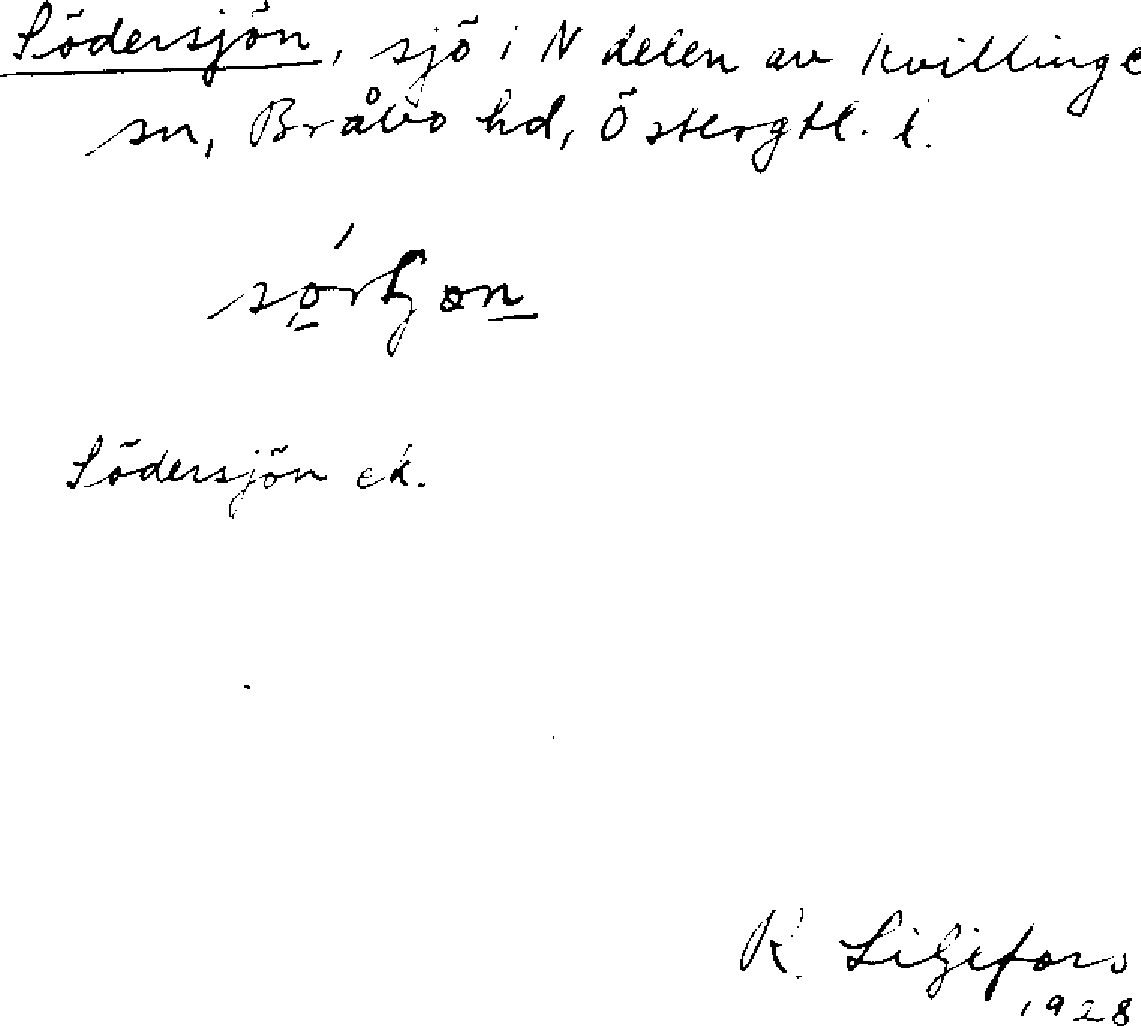 Södersjön, sjö i N delen av Kvillinge
sn, Bråbo hd, Östergtl. l.
Södersjön ek.
K. Liljefors
1928